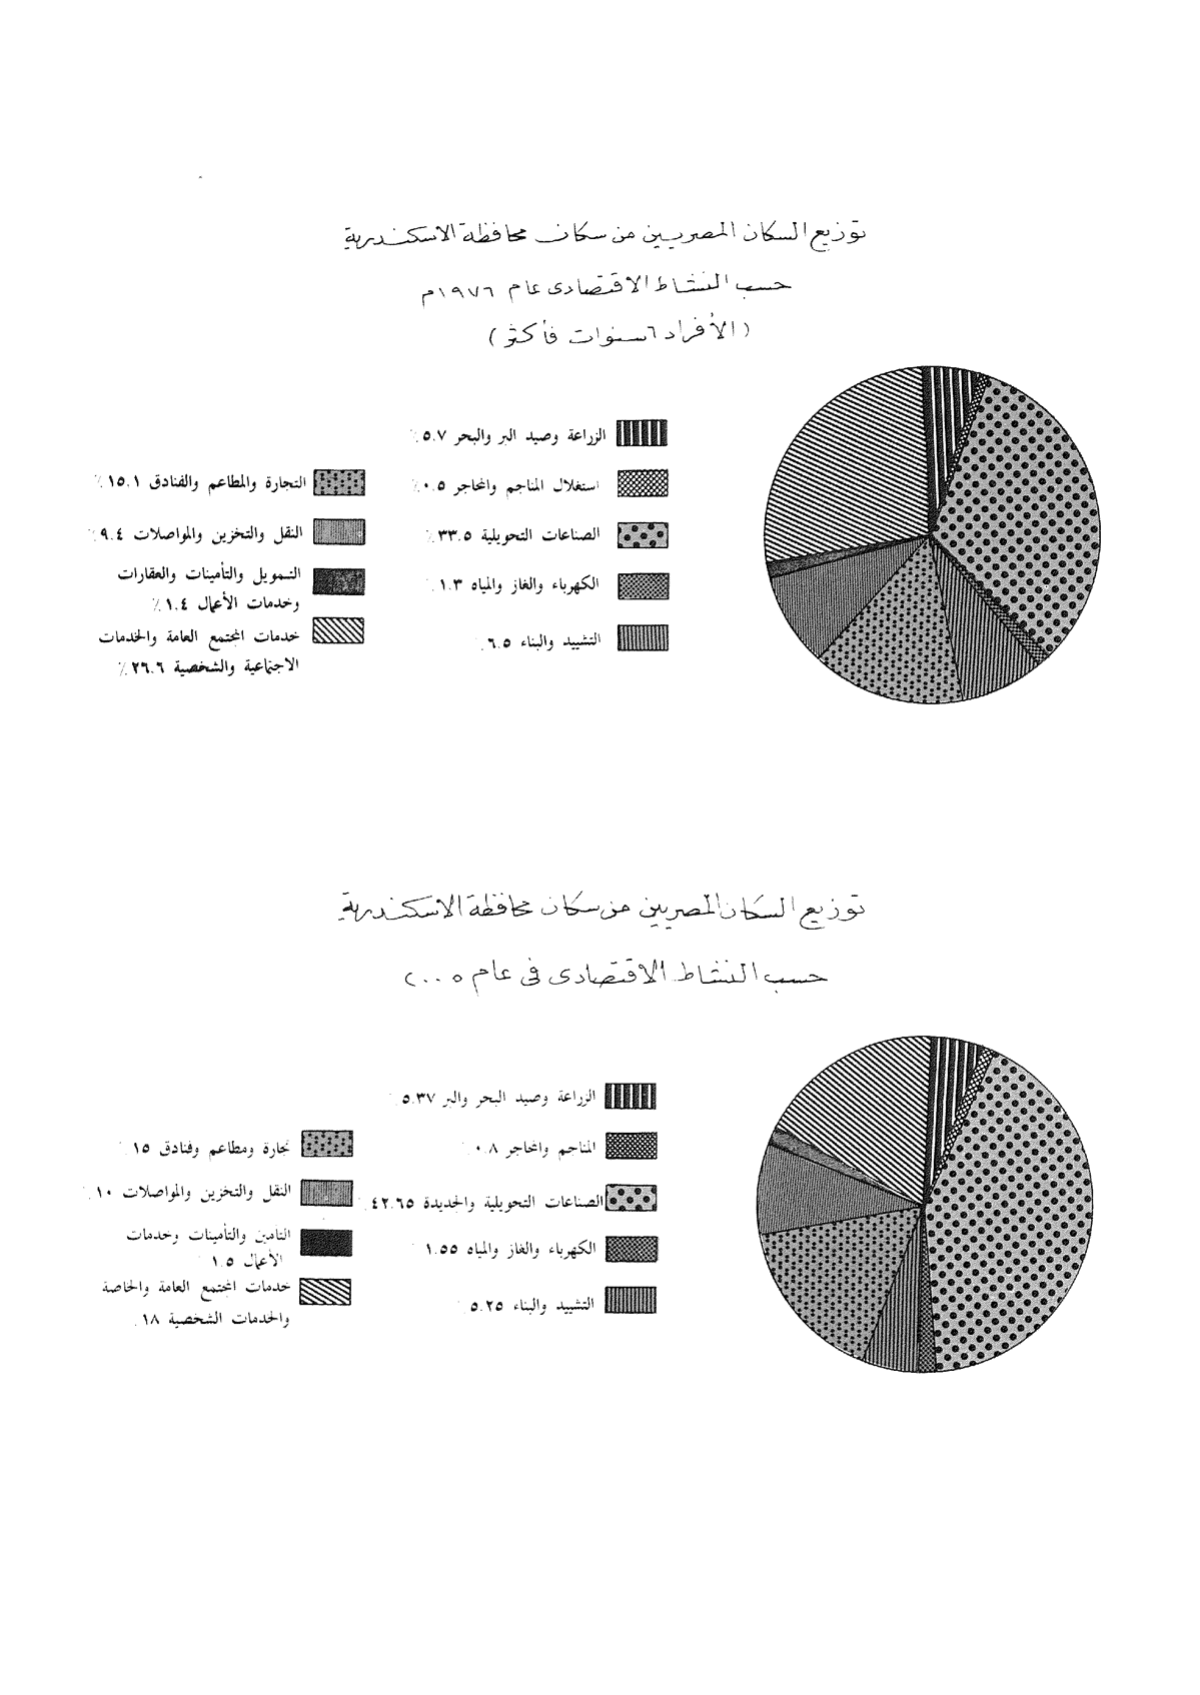 توزيع السكان المصريين من سكان محافظة الاسكندرية
حسب النشاط الاقتصادى عام ١٩٧٦م
(الأفراد ٦ سنوات فأكثر)
الزراعة وصيد البر والبحر ٥.٧٪
استغلال المناجم والمحاجر ٠.٥٪
الصناعات التحويلية ٣٣.٥٪
الكهرباء والغاز والمياه ١.٣٪
التشييد والبناء ٦.٥٪
التجارة والمطاعم والفنادق ١٥.١٪
النقل والتخزين والمواصلات ٩.٤٪
التمويل والتأمينات والعقارات
وخدمات الأعمال ١.٤٪
خدمات المجتمع العامة والخدمات
الاجتماعية والشخصية ٢٦.٦٪
توزيع السكان المصريين من سكان محافظة الاسكندرية
حسب النشاط الاقتصادى فى عام ٢٠٠٥
الزراعة وصيد البحر والبر ٥.٣٧
المناجم والمحاجر ٠.٨
الصناعات التحويلية والجديدة ٤٢.٦٥
الكهرباء والغاز والمياه ١.٥٥
التشييد والبناء ٥.٢٥
تجارة ومطاعم وفنادق ١٥
النقل والتخزين والمواصلات ١٠
التامين والتأمينات وخدمات
الأعمال ١.٥
خدمات المجتمع العامة والخاصة
والخدمات الشخصية ١٨